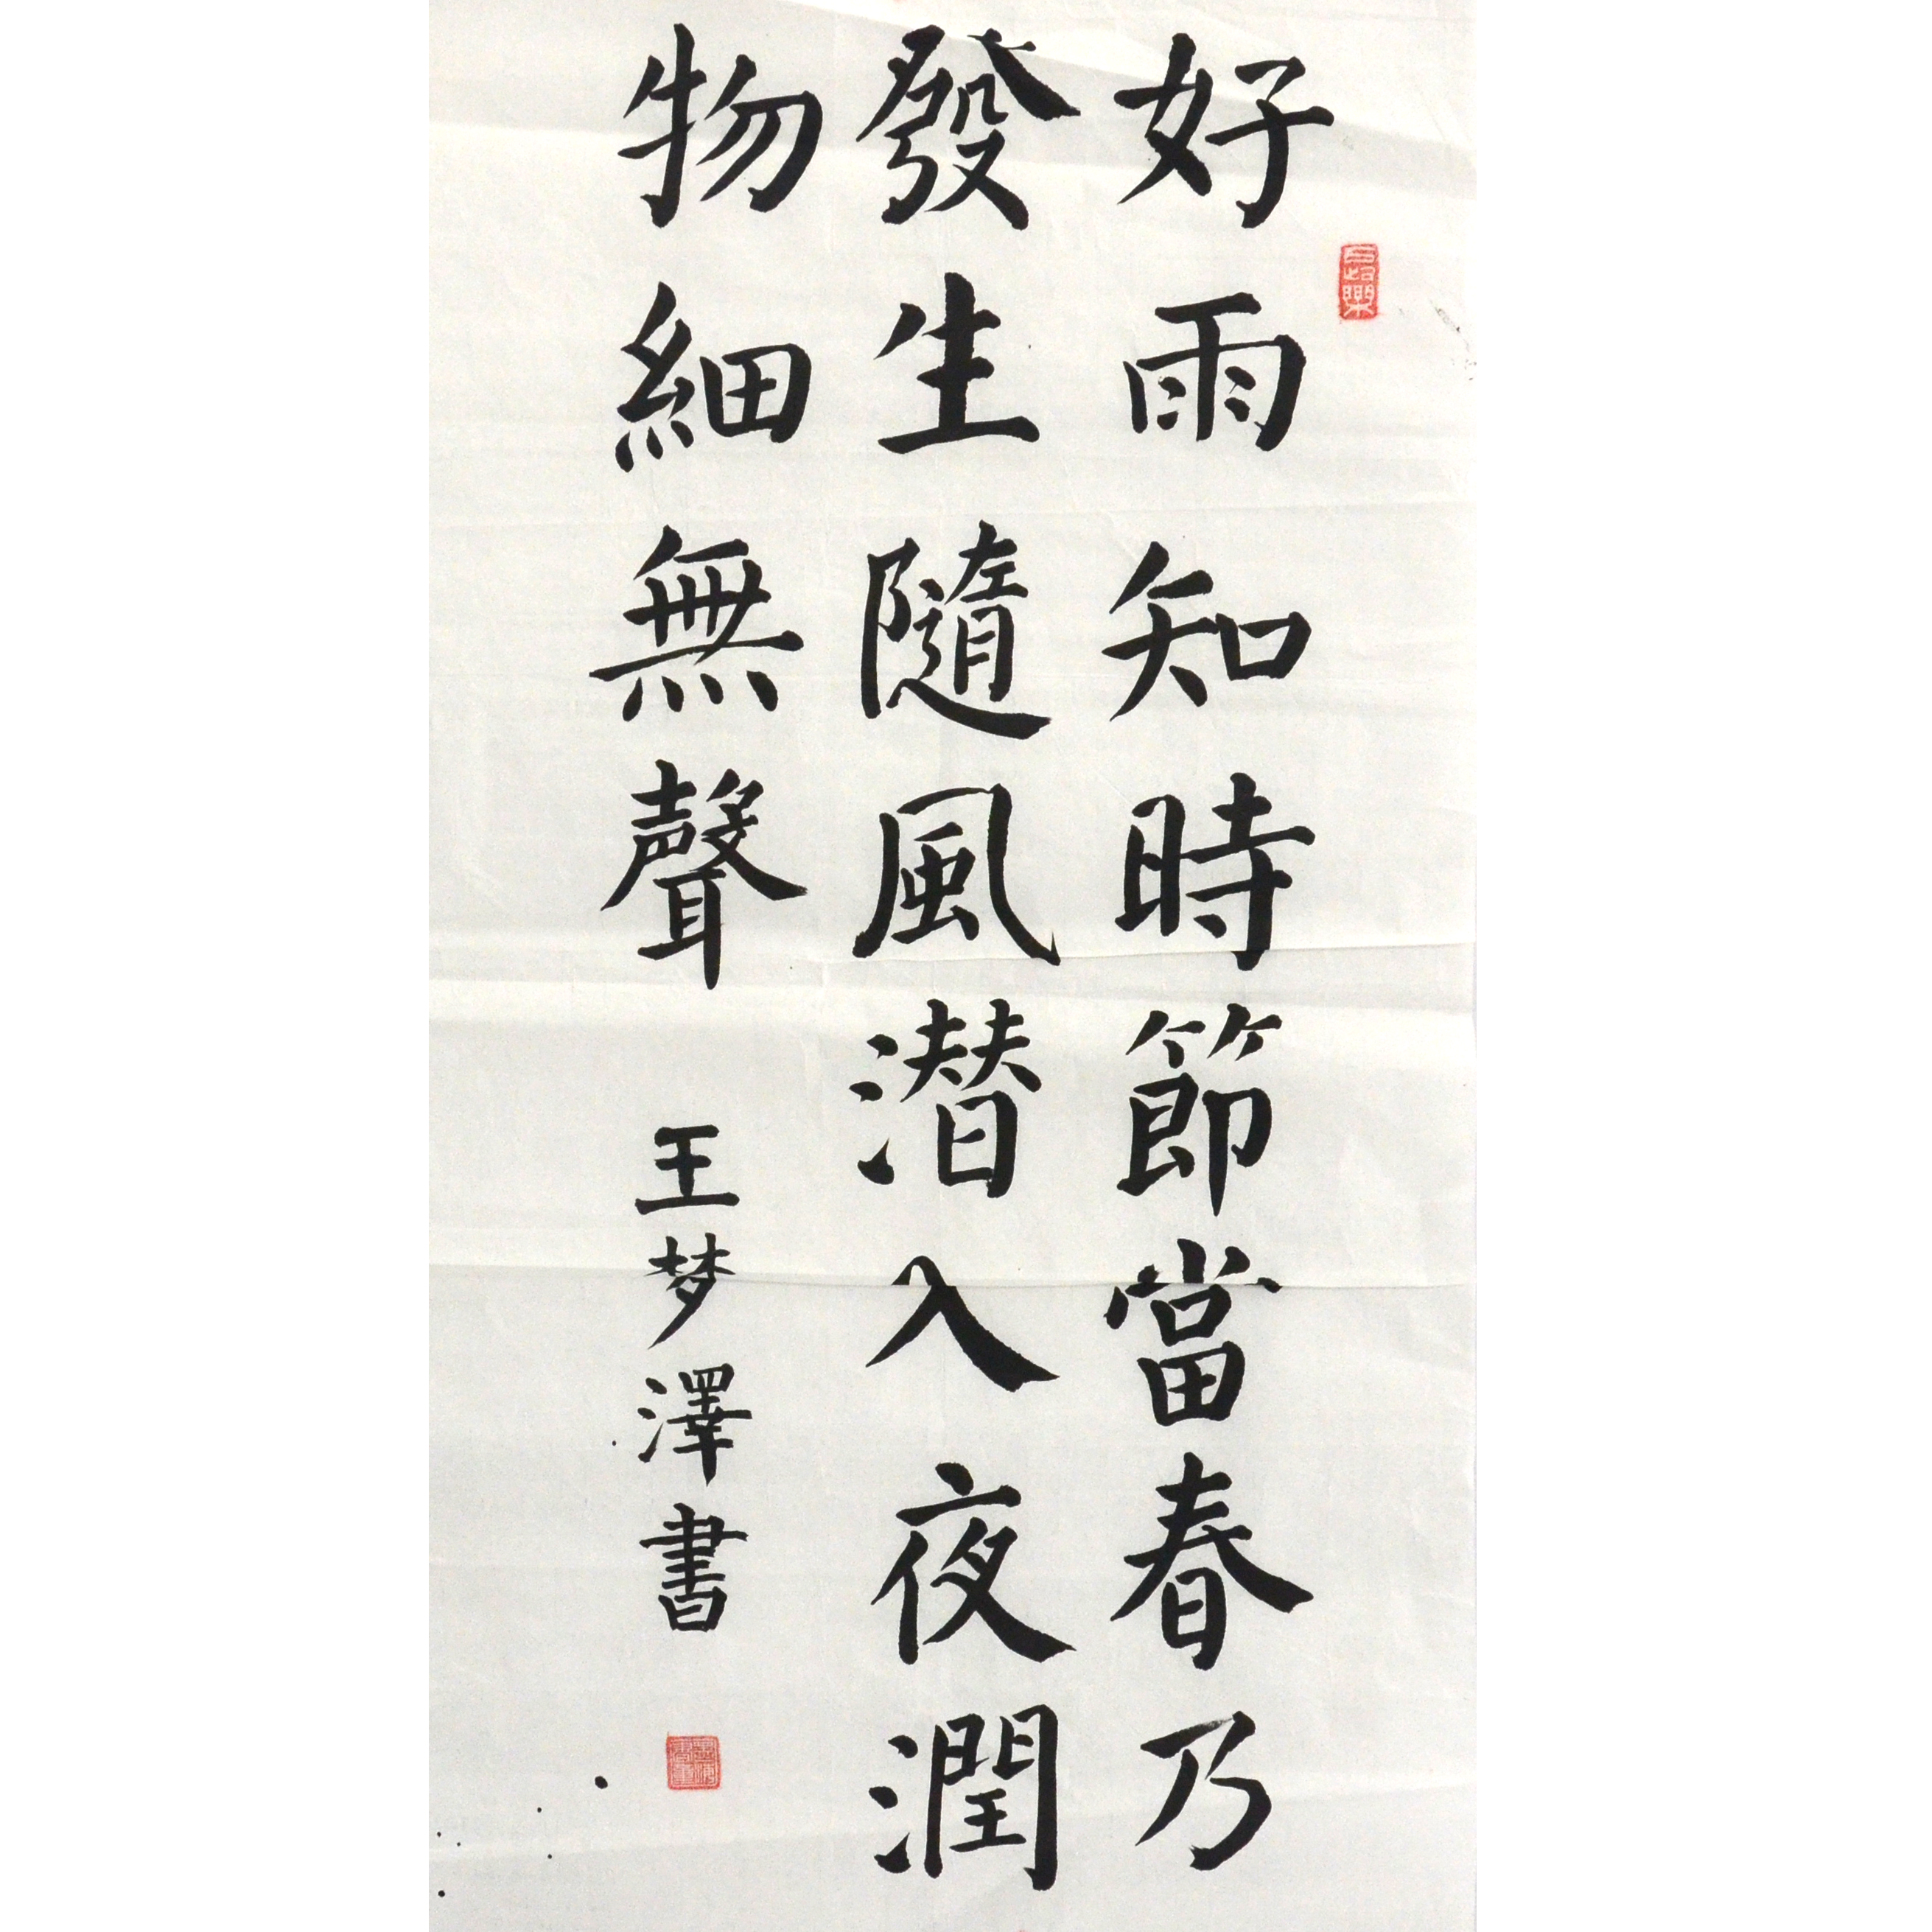 好雨知時節當春乃
發生隨風潜入夜潤
物細無聲
王梦澤書